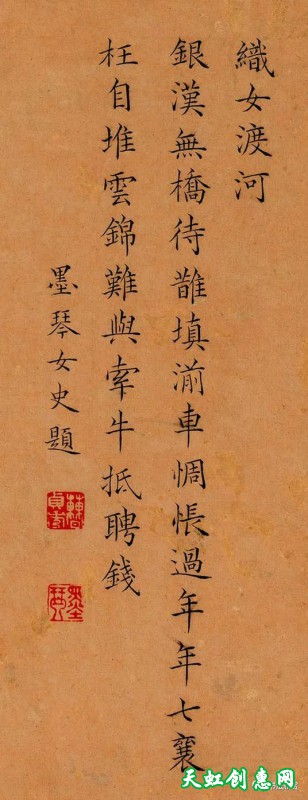 織女渡河
銀漢無橋待䧿填湔車惆悵過年年七襄
枉自堆雲錦難與牽牛抵聘錢
墨琴女史題
墨琴
天虹创惠网